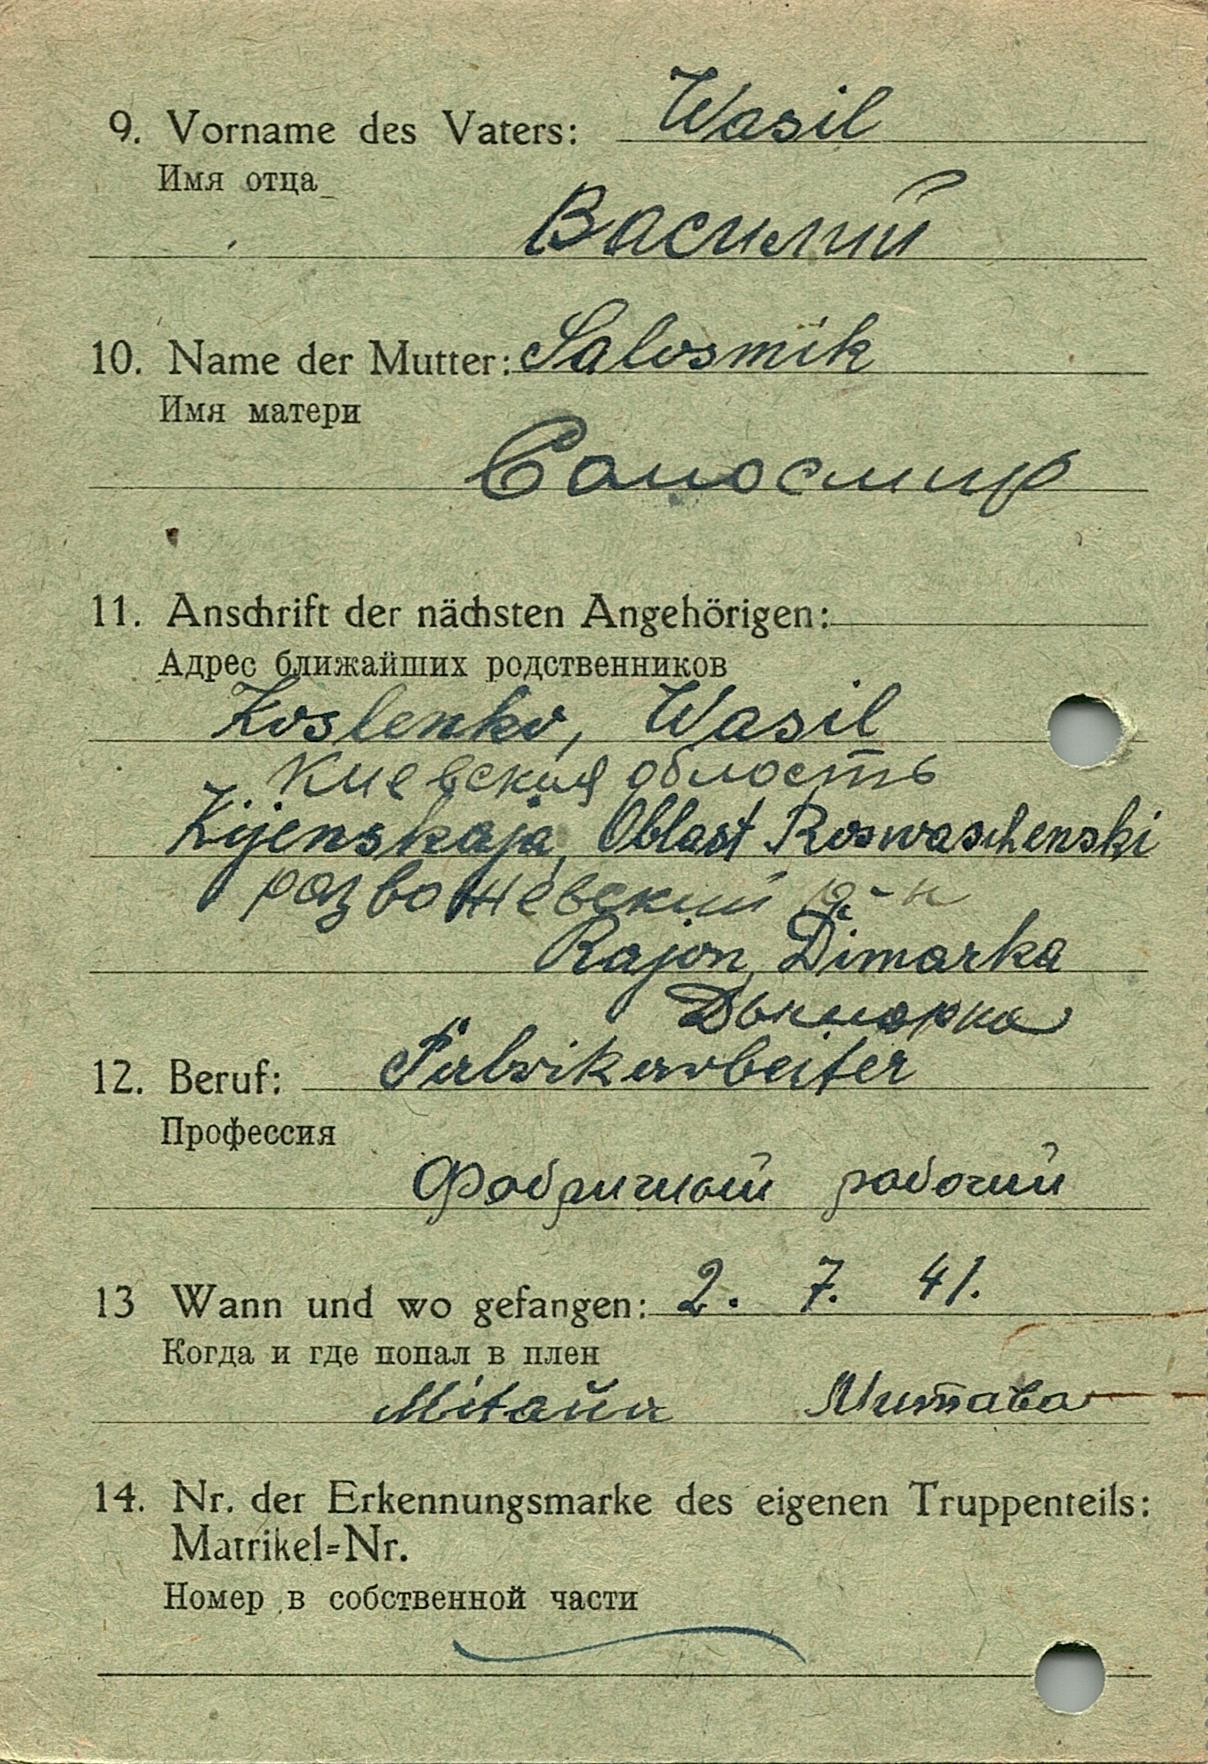 9. Vorname des Vaters: Wasil
Имя отца
Василий
10. Name der Mutter: Salosmik
Имя матери
11. Anschrift der nächsten Angehörigen:
Адрес ближайших родственников
Koslenko, Wasil
Киевская область
Kijenskaja, Oblast Roswaschenski
розважевский р-н
Rajon, Dimarka
12. Beruf: Fabrikarbeiter
Профессия
Фабричный рабочий
13 Wann und wo gefangen: 2. 7. 41.
Когда и где попал в плен
Mitaŭa Митава
14. Nr. der Erkennungsmarke des eigenen Truppenteils:
Matrikel=Nr.
Номер в собственной части